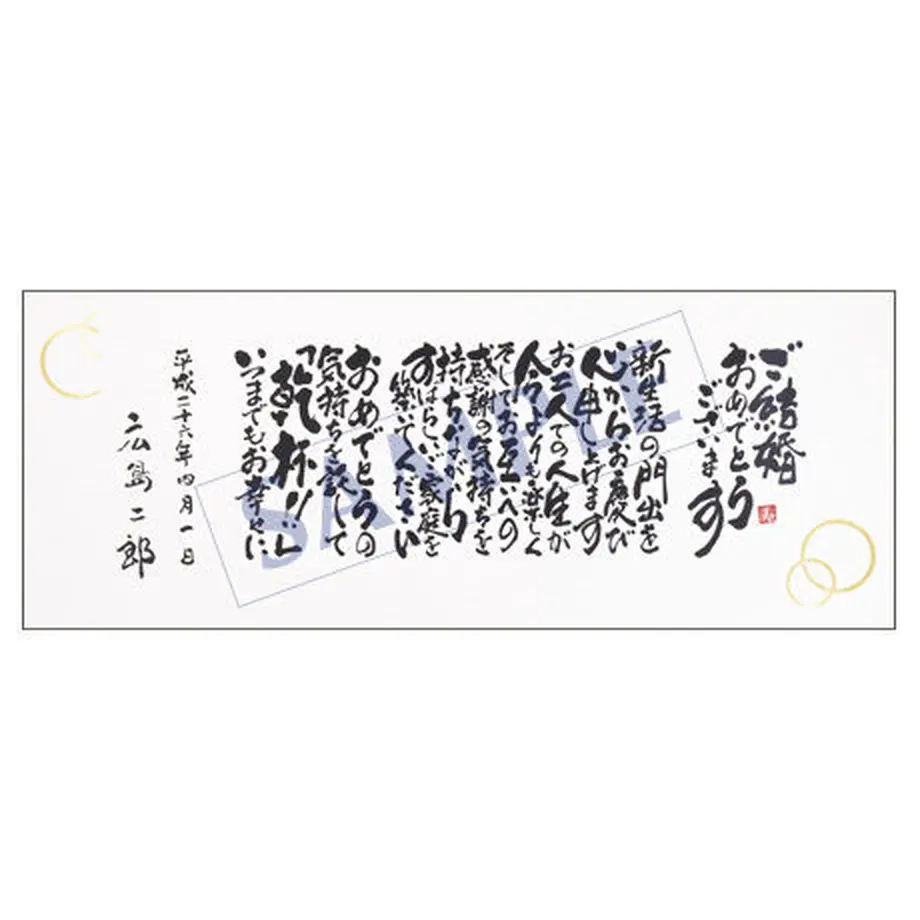 ご結婚
おめでとう
ございます
新生活の門出を
心からお慶び
申し上げます
お二人での人生が
今うよりも楽しく
そしてお互いへの
感謝の気持ちを
持ちながら
すばらしい家庭を
築いてください
おめでとうの
気持ちを託して
「乾杯!!」
いつまでもお幸せに
平成二十六年四月一日
広島二郎
寿
SAMPLE